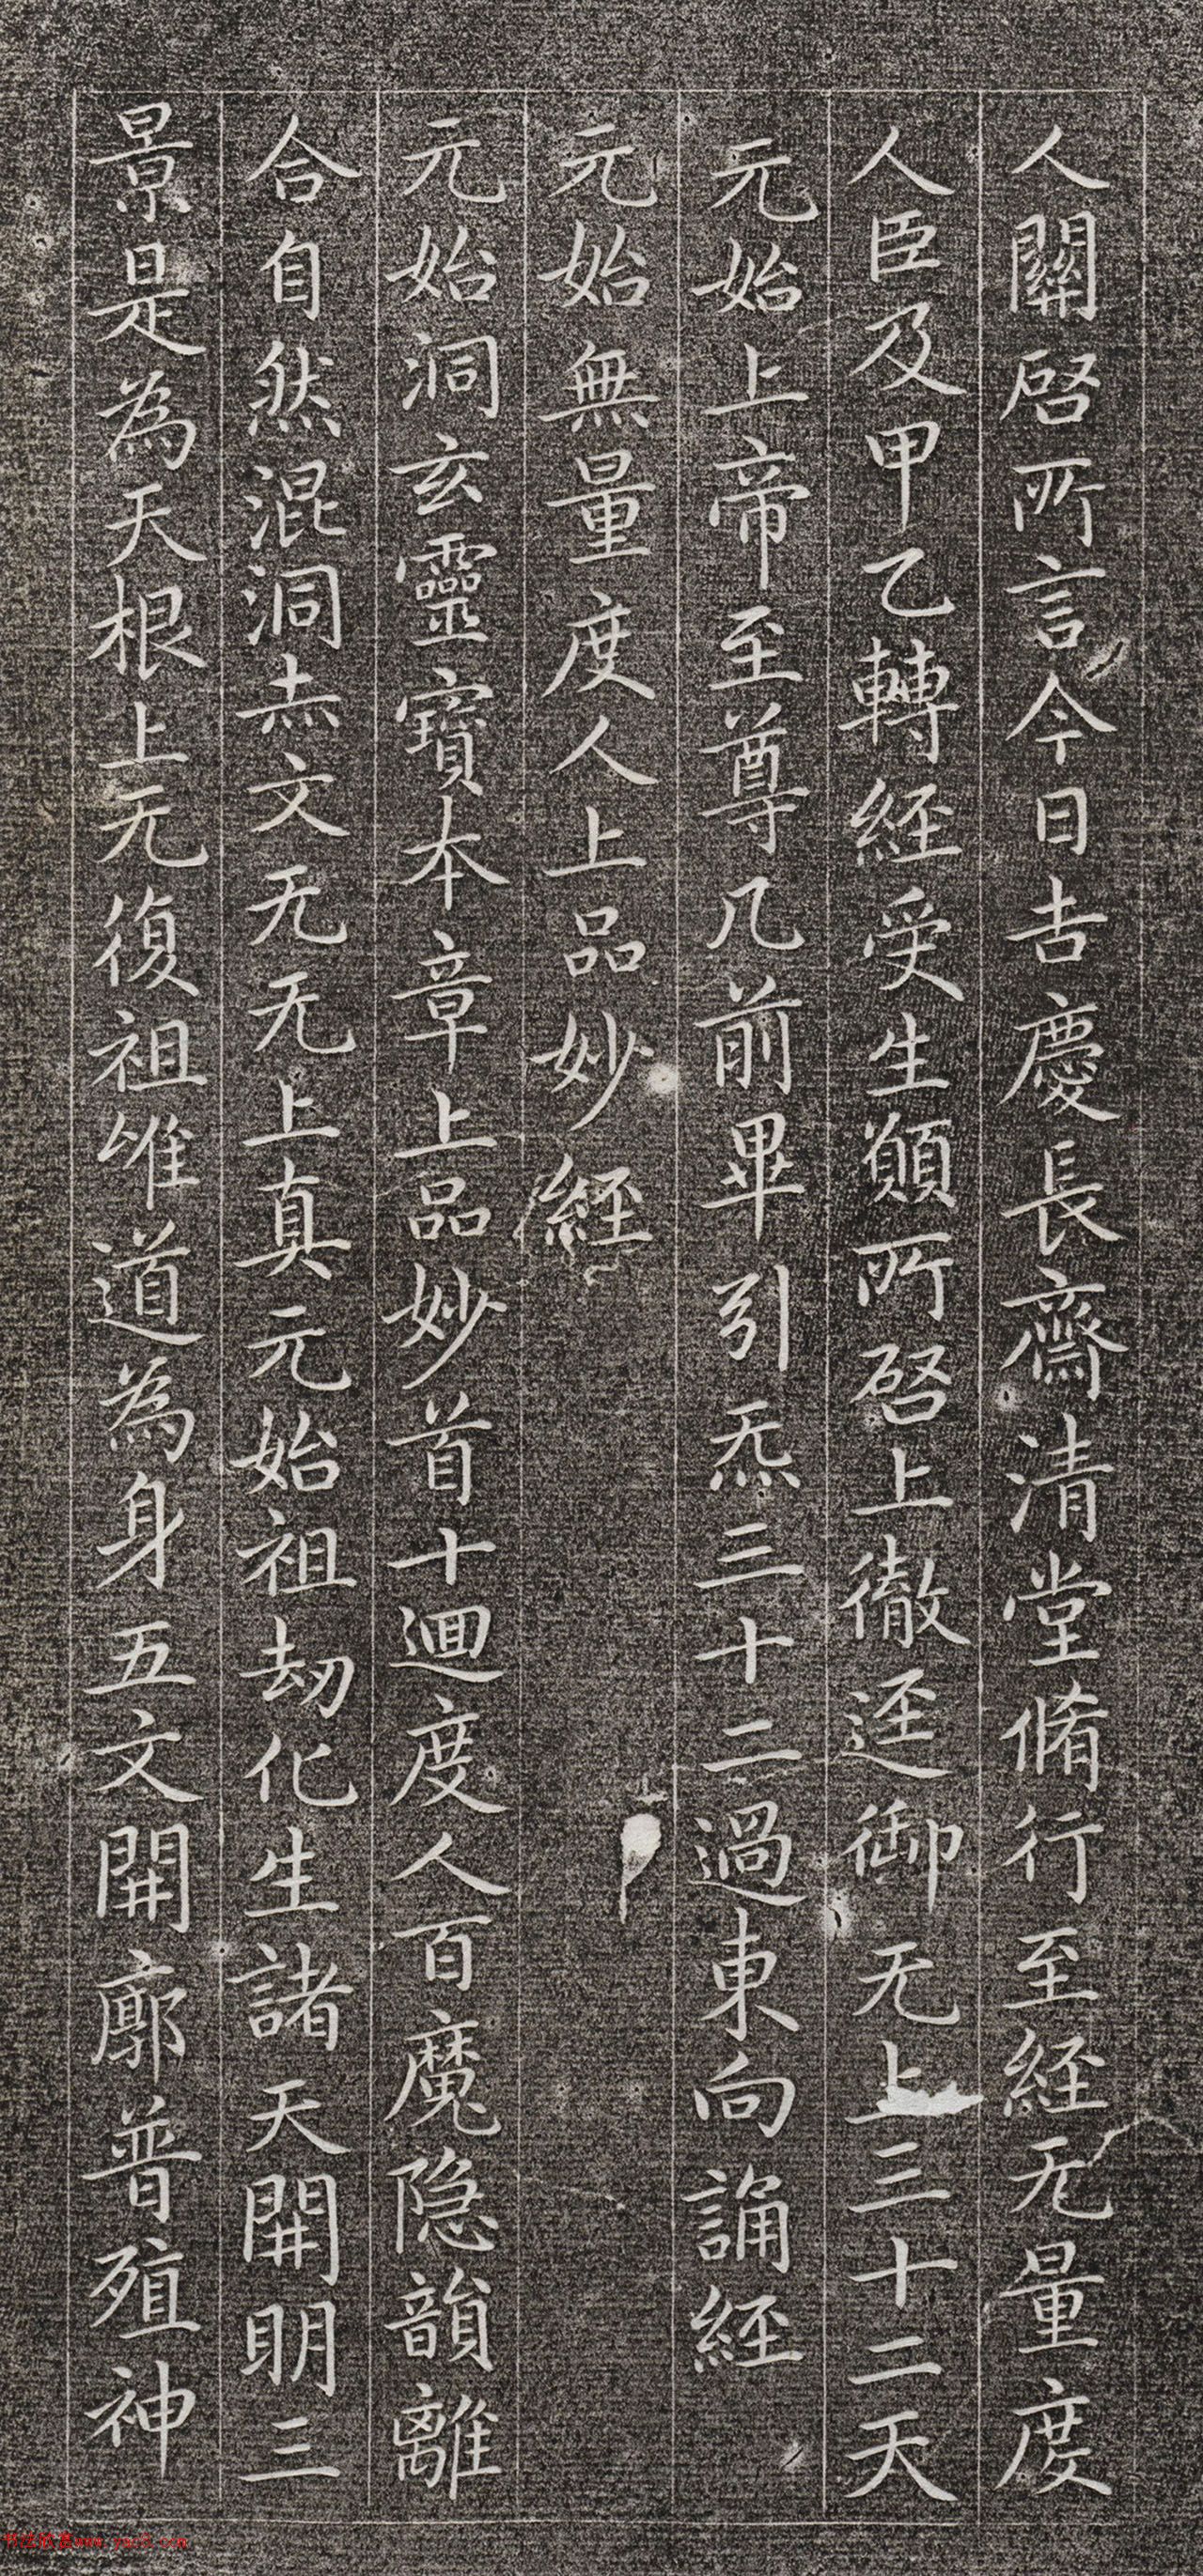 人關啓所言今日吉慶長齋清堂脩行至經无量度
人臣及甲乙轉經受生願所啓上徹逕御无上三十二天
元始上帝至尊几前畢引炁三十二過東向誦經
元始無量度人上品妙經
元始洞玄靈寶本章上品妙首十迴度人百魔隐韻離
合自然混洞赤文无无上真元始祖劫化生諸天開明三
景是為天根上无復祖唯道為身五文開廓普殖神